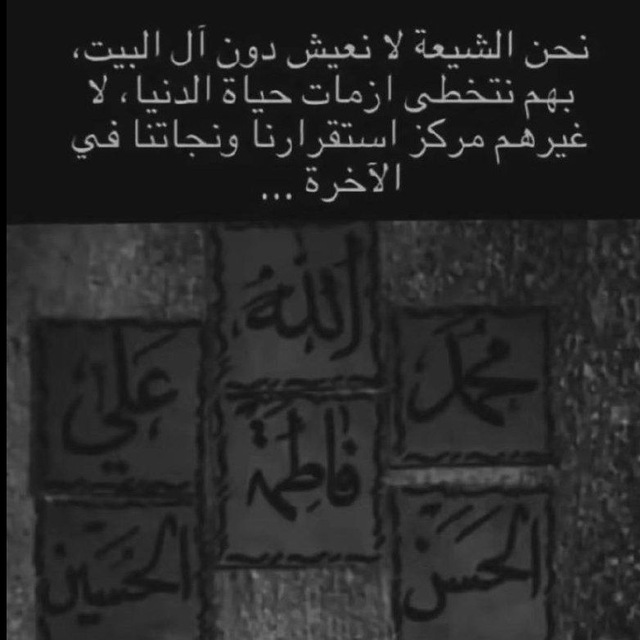 نحن الشيعة لا نعيش دون آل البيت،
بهم نتخطى ازمات حياة الدنيا، لا
غيرهم مركز استقرارنا ونجاتنا في
الآخرة ...
الله
محمد
علي
فاطمة
الحسن
الحسين